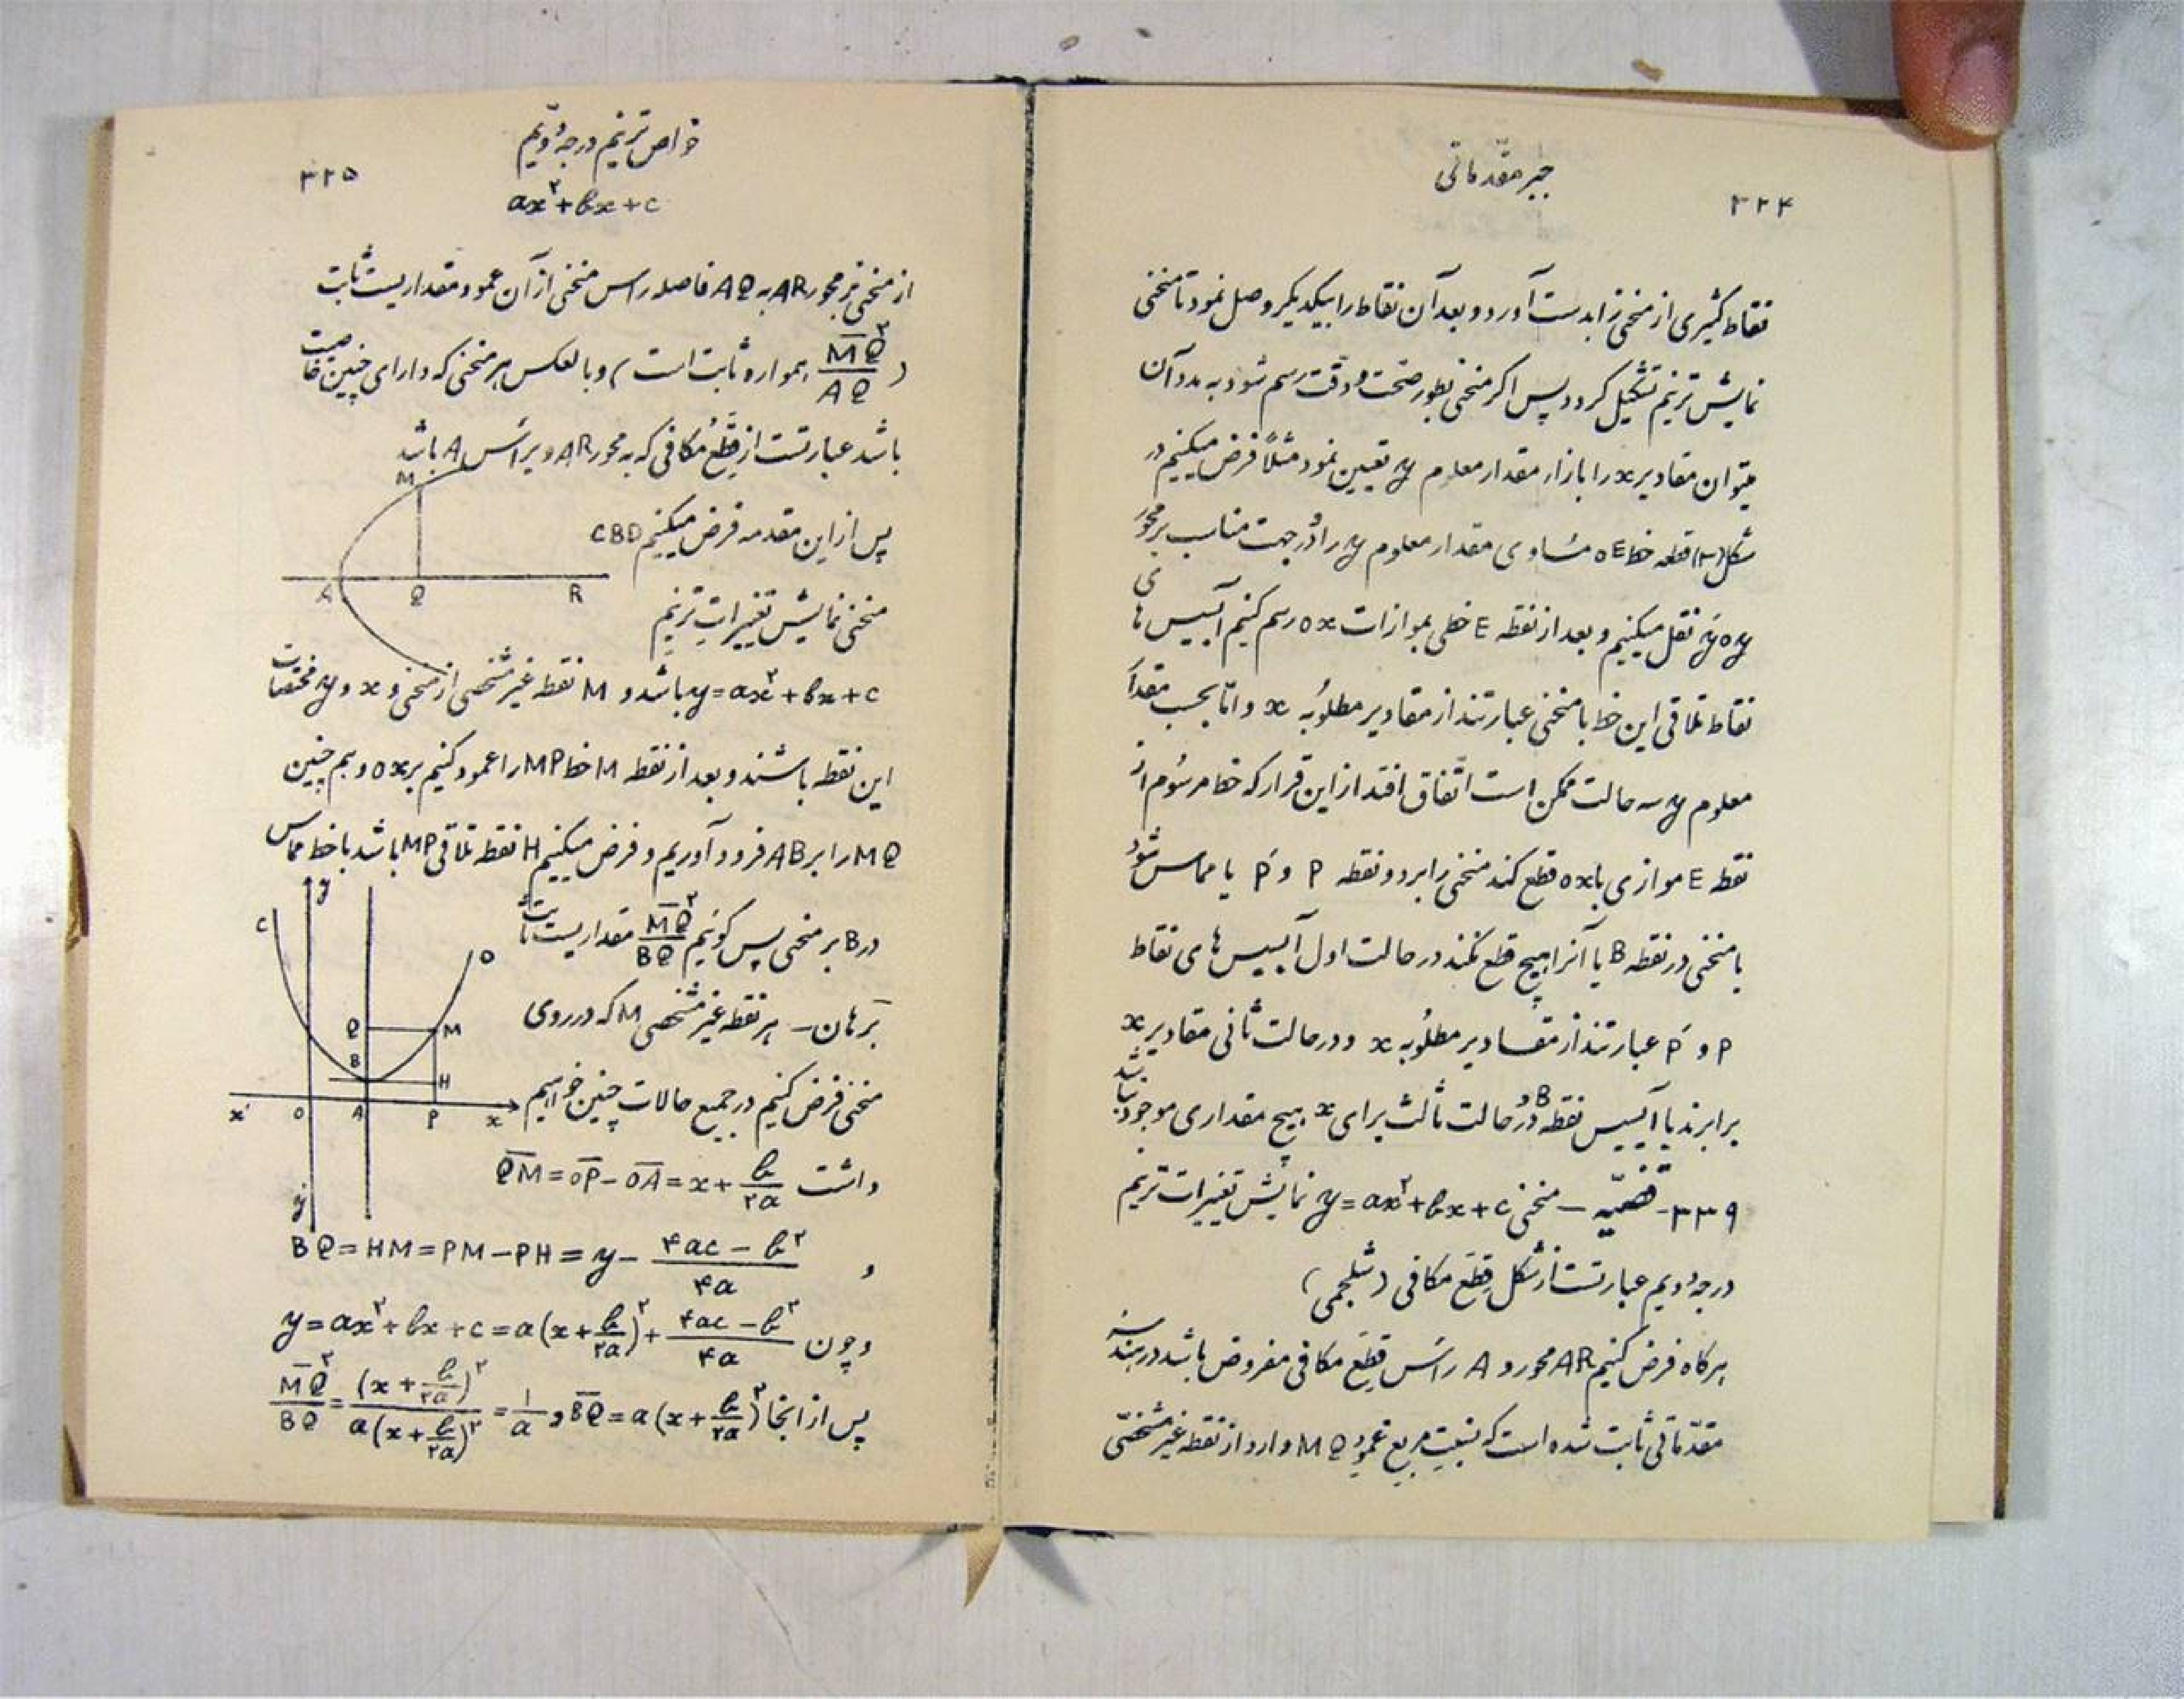 ۳۲۴
جبر مقدّماتی
نقاط کثیری از منحنی را بدست آورد و بعد آن نقاط را بیکدیگر وصل نمود تا منحنی
نمایش ترینم تشکیل کردد پس اکر منحنی بطور صحّت و دقّت رسم شود به مدد آن
میتوان مقادیر x را بازاء مقدار معلوم y تعیین نمود مثلاً فرض میکنیم در
شکل (۳) قطعه خط OE مساوی مقدار معلوم y را در جهت مناسب بر محور
yoy′ نقل میکنیم و بعد از نقطه E خطی بموازات ox رسم کنیم آبسیس های
نقاط تلاقی این خط با منحنی عبارتند از مقادیر مطلوبُه x و امّا بحسب مقدار
معلوم y سه حالت ممکن است اتّفاق افتد از این قرار که خط مرسُوم از
نقطه E موازی با ox قطع کند منحنی را بر دو نقطه P و P′ یا مماس شود
با منحنی در نقطه B یا آنرا هیچ قطع نکند در حالت اول آبسیس های نقاط
P و P′ عبارتند از مقادیر مطلوبُه x و در حالت ثانی مقادیر x
برابرند با آبسیس نقطه B و در حالت ثالث برای x هیچ مقداری موجود نباشد
۳۳۹- قضیّه — منحنی y=ax²+bx+c نمایش تغییرات ترینم
درجه دویم عبارتست از شکل قِطَع مکافی (شلجمی)
هرکاه فرض کنیم AR محور و A رأس قِطَع مکافی مفروض باشد در هندسه
مقدّماتی ثابت شده است که نسبت مربع عمود MQ وارد از نقطه غیر مشخّصی
۳۲۵
خواص ترینم درجه دویّم
ax²+bx+c
از منحنی بر محور AR به AQ فاصله رأس منحنی از آن عمود مقداریست ثابت
(MQ²/AQ همواره ثابت است) و بالعکس هر منحنی که دارای چنین خاصیت
باشد عبارتست از قِطَع مکافی که به محور AR و برأس A باشد
M
A Q R
پس از این مقدمه فرض میکنیم CBD
منحنی نمایش تغییرات ترینم
y=ax²+bx+c باشد و M نقطه غیر مشخصی از منحنی و x و y مختصات
این نقطه باشند و بعد از نقطه M خط MP را عمود کنیم بر ox و هم چنین
MQ را بر AB فرود آوریم و فرض میکنیم H نقطه تلاقی MP باشد با خط مماس
در B بر منحنی پس کوئیم MQ²/BQ مقداریست ثابت
برهان — هر نقطه غیر مشخصی M که در روی
منحنی فرض کنیم در جمیع حالات چنین خواهیم
y
C D
Q M
B H
x′ O A P x
y′
داشت QM=OP-OA=x+b/۲a
و BQ=HM=PM-PH=y-(۴ac-b²)/۴a
و چون y=ax²+bx+c=a(x+b/۲a)²+(۴ac-b²)/۴a
پس از اینجا BQ=a(x+b/۲a)² و MQ²/BQ=(x+b/۲a)²/a(x+b/۲a)²=۱/a